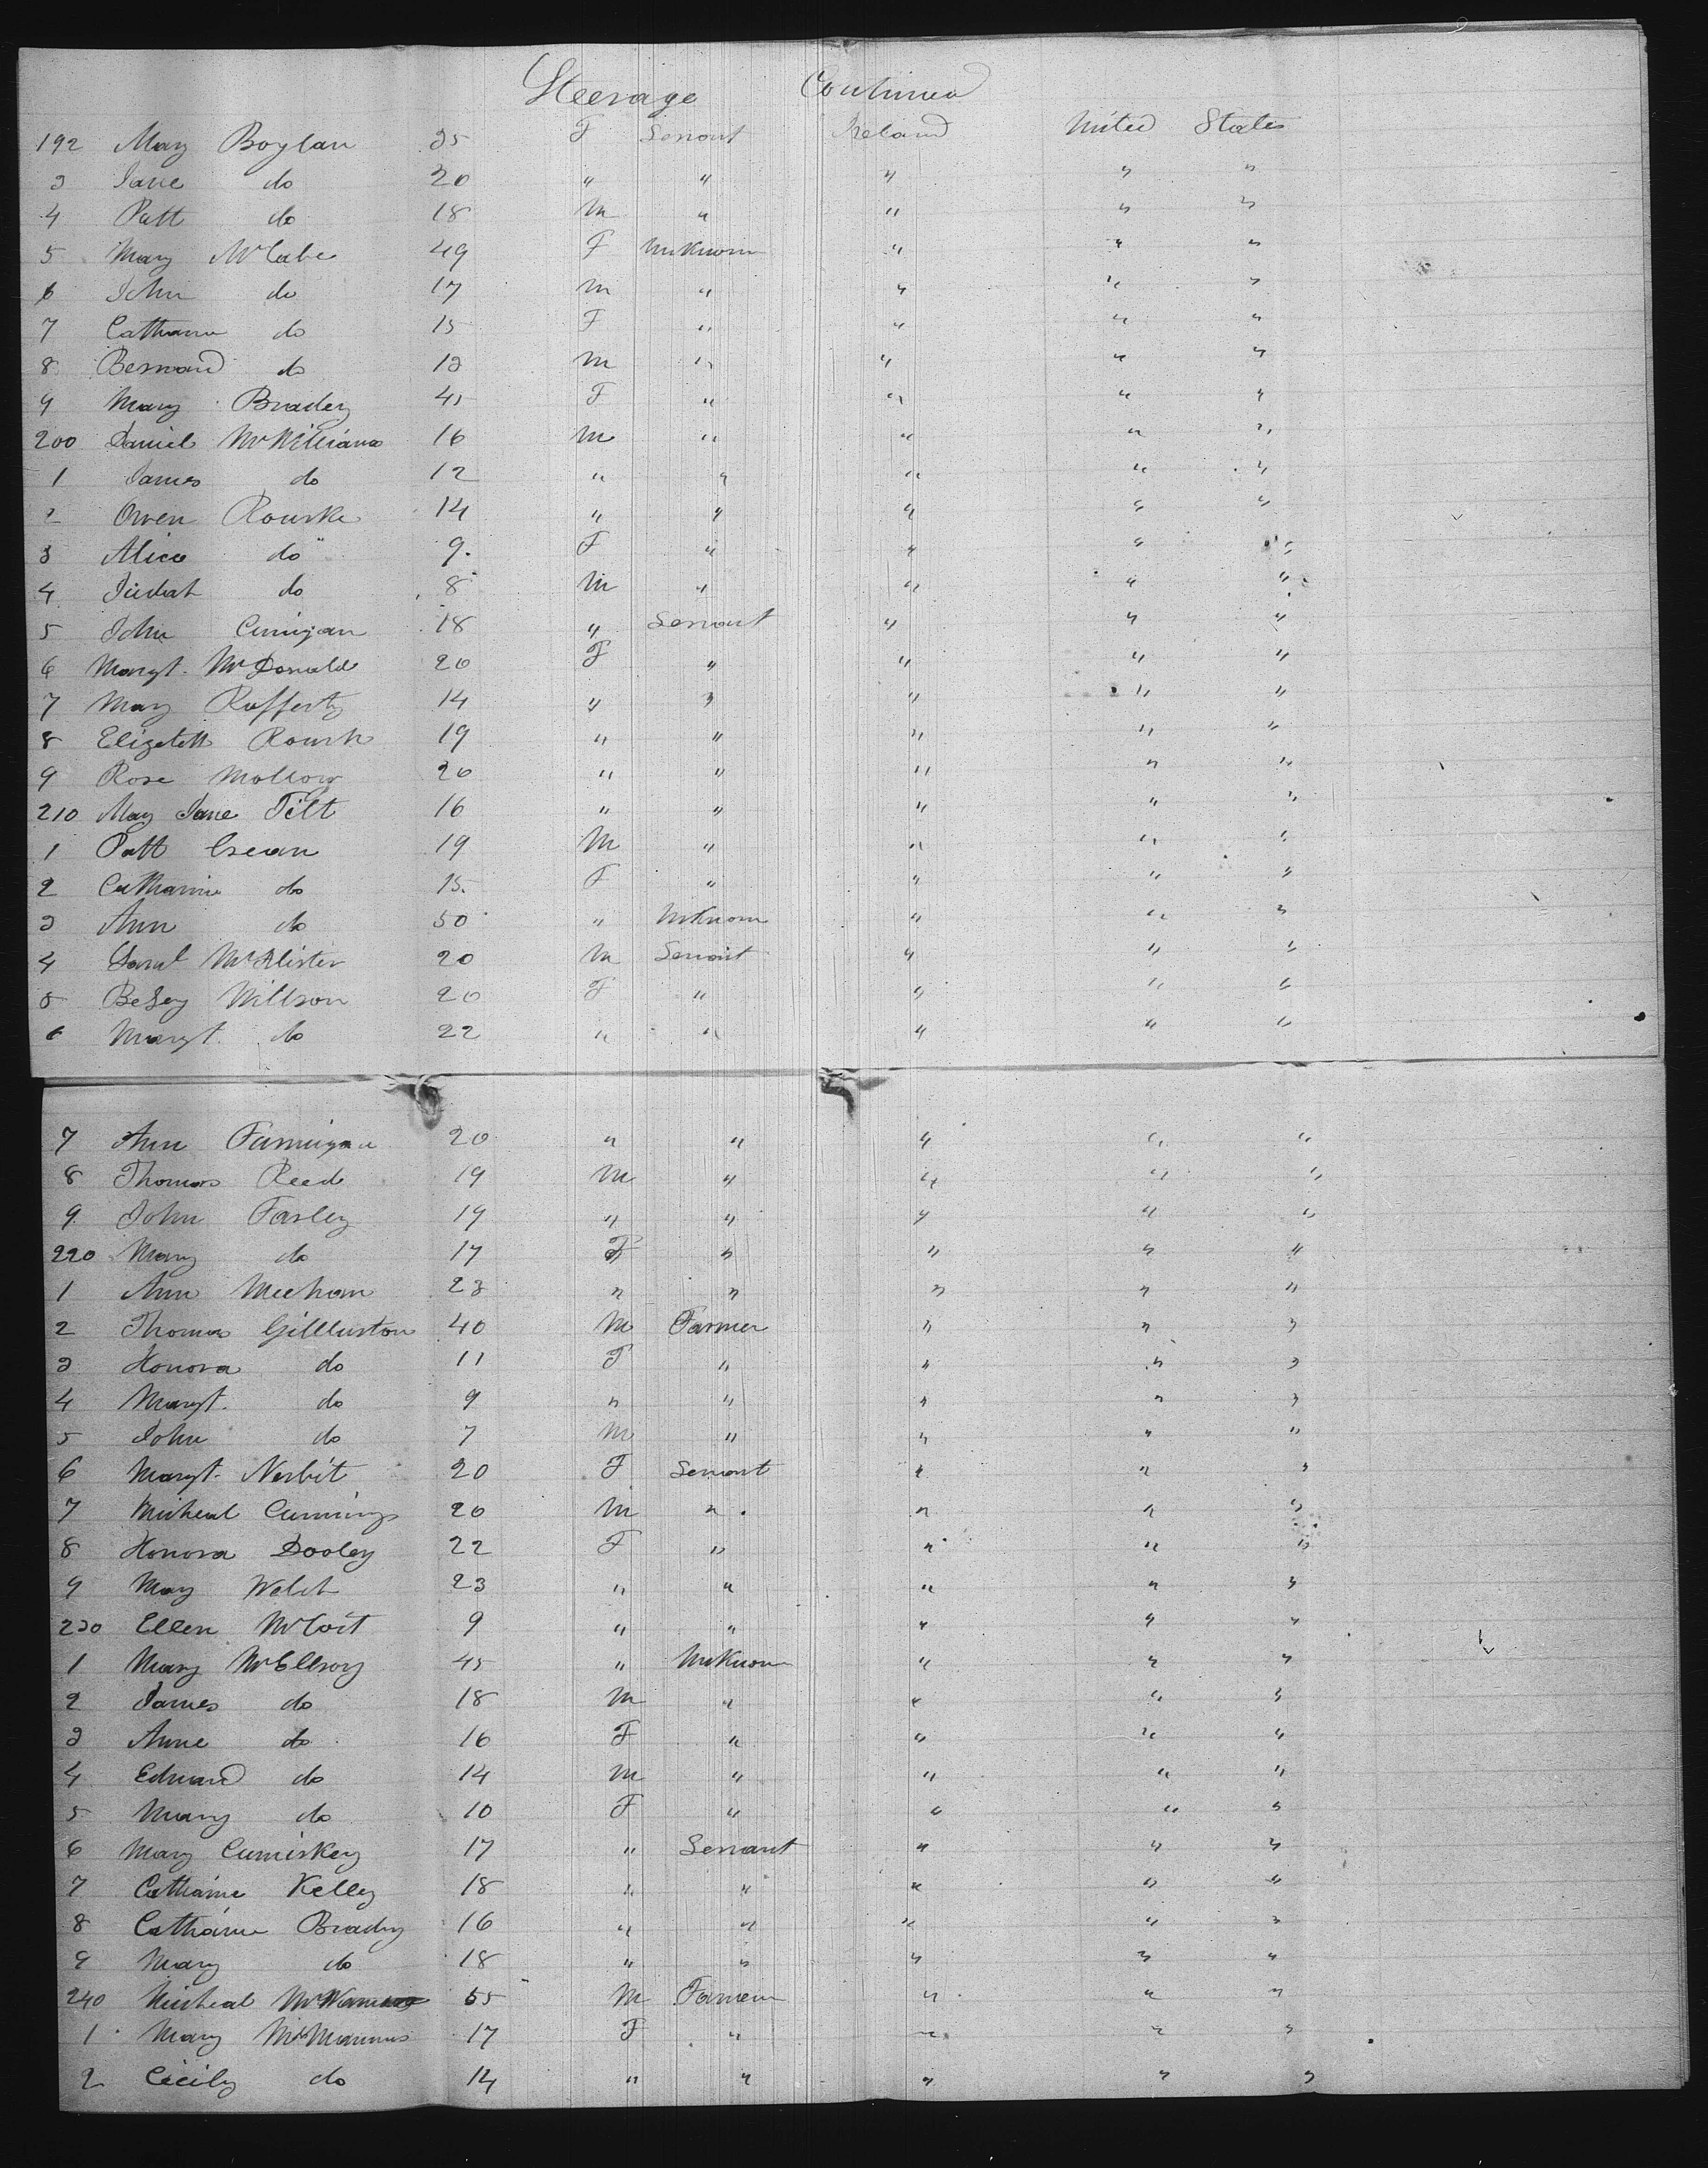 Steerage Continued
192 Mary Boylan 25 F Servant Ireland United States
3 Jane do 20 " " " " "
4 Patt do 18 M " " " "
5 Mary McCabe 49 F Unknown " " "
6 John do 17 M " " " "
7 Catharine do 15 F " " " "
8 Bernard do 13 M " " " "
9 Mary Brady 45 F " " " "
200 Daniel McWilliams 16 M " " " "
1 James do 12 " " " " "
2 Owen Rourke 14 " " " " "
3 Alice do 9 F " " " "
4 do 8 M " " " "
5 John 18 " Servant " " "
6 Margt. McDonald 20 F " " " "
7 Mary Rafferty 14 " " " " "
8 Elizabeth Rourk 19 " " " " "
9 Rose Mollow 20 " " " " "
210 Mary Jane Tilt 16 " " " " "
1 Patt Crean 19 M " " " "
2 Catharine do 15 F " " " "
3 Ann do 50 " Unknown " " "
4 McAlister 20 M Servant " " "
5 Betsey Willson 20 F " " " "
6 Margt. do 22 " " " " "
7 Ann 20 " " " " "
8 Thomas Reed 19 M " " " "
9 John Farley 19 " " " " "
220 Mary do 17 F " " " "
1 Ann Meehan 23 " " " " "
2 Thomas 40 M Farmer " " "
3 Honora do 11 F " " " "
4 Margt. do 9 " " " " "
5 John do 7 M " " " "
6 Margt. Nesbit 20 F Servant " " "
7 Micheal Cummings 20 M " " " "
8 Honora Dooley 22 F " " " "
9 Mary Welch 23 " " " " "
230 Ellen 9 " " " " "
1 Mary McEllroy 45 " Unknown " " "
2 James do 18 M " " " "
3 Anne do 16 F " " " "
4 Edward do 14 M " " " "
5 Mary do 10 F " " " "
6 Mary Cumiskey 17 " Servant " " "
7 Catharine Kelley 18 " " " " "
8 Catharine Brady 16 " " " " "
9 Mary do 18 " " " " "
240 Micheal 55 M Farmer " " "
1 Mary McMannus 17 F " " " "
2 Cicily do 14 " " " " "